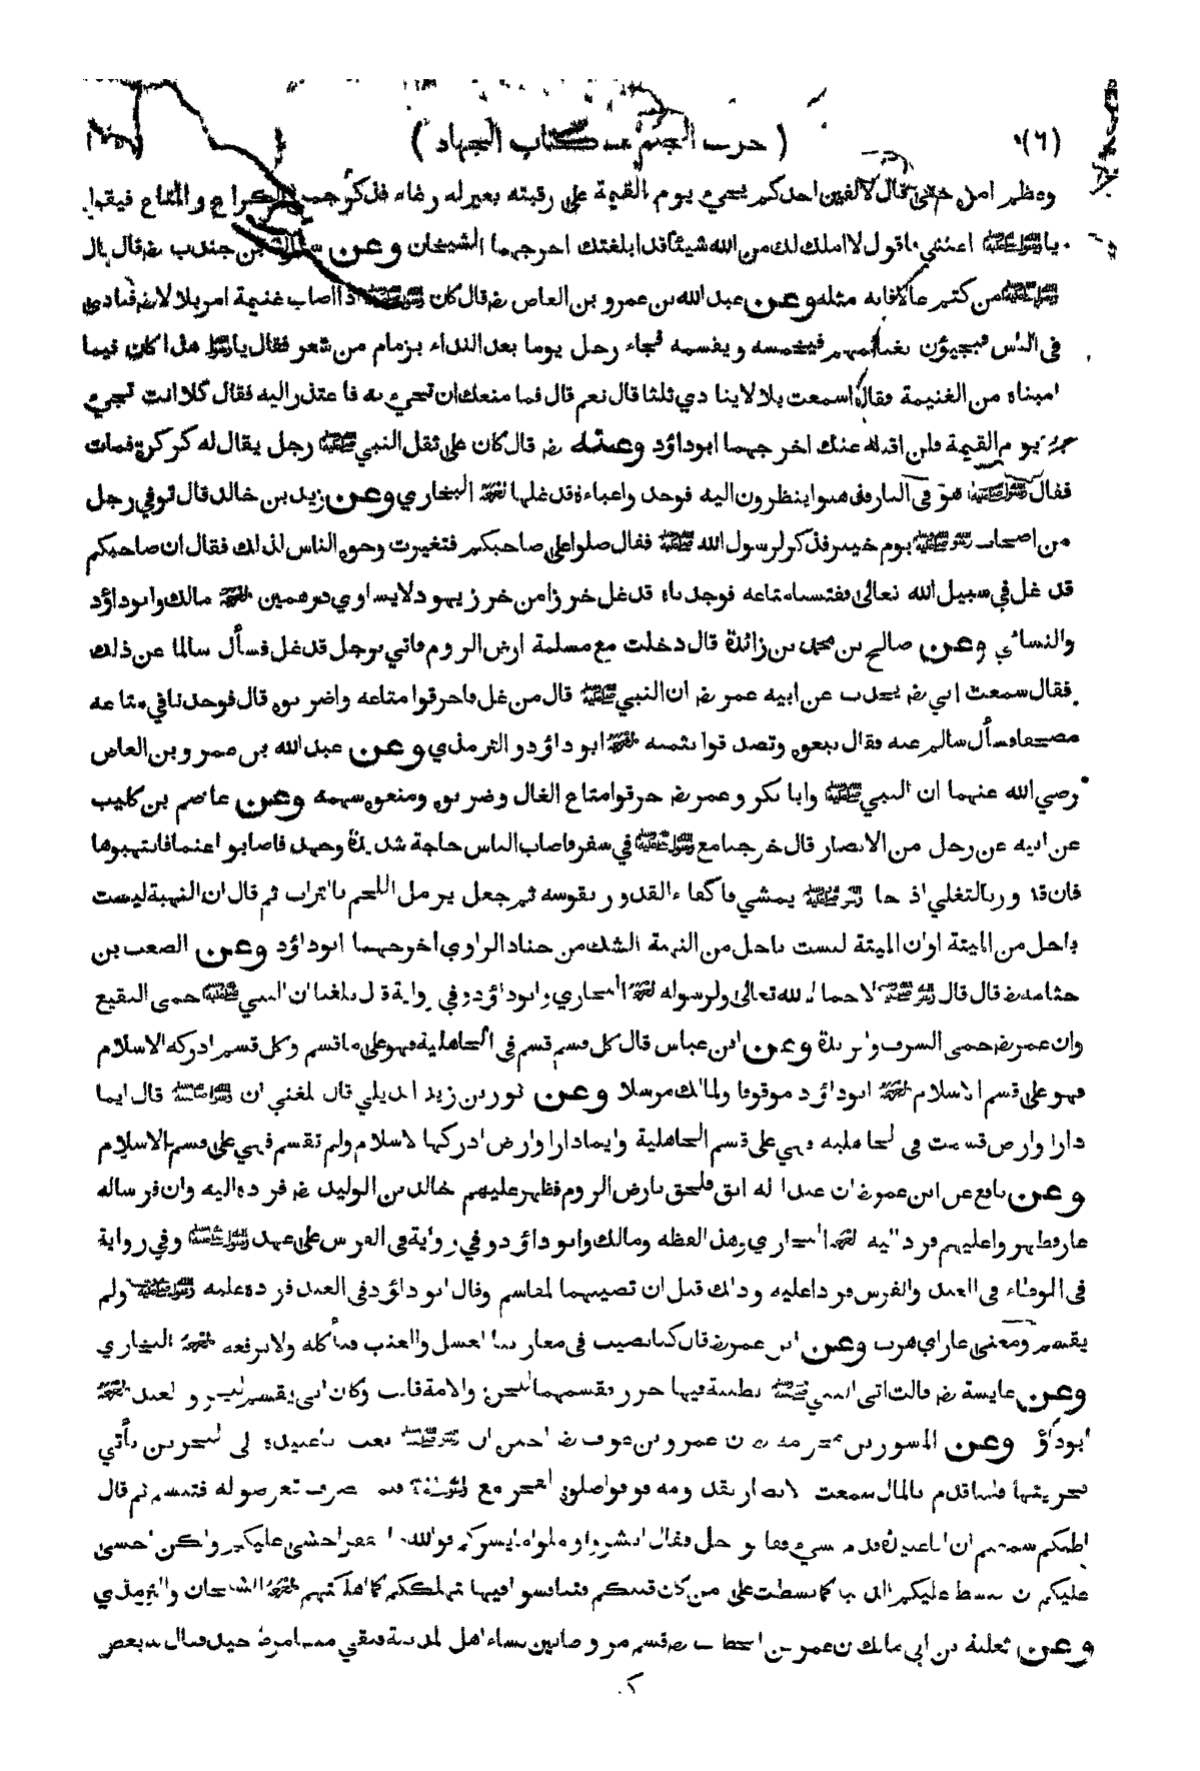 (٦) ( حرف الجيم — كتاب الجهاد )
وعظم امره حتى قال لا الفين احدكم يجيء يوم القيمة على رقبته بعير له رغاء فذكر الكراع والمتاع فيقول
يا رسول الله اغثني فاقول لا املك لك من الله شيئا قد ابلغتك اخرجهما الشيخان وعن سمرة بن جندب رض قال قال
رسول الله ﷺ من كتم غالا فانه مثله وعن عبد الله بن عمرو بن العاص رض قال كان رسول الله ﷺ اذا اصاب غنيمة امر بلالا رض فنادى
في الناس فيجيؤن بغنائمهم فيخمسه ويقسمه فجاء رجل يوما بعد النداء بزمام من شعر فقال يا رسول الله هذا كان فيما
اصبناه من الغنيمة فقال اسمعت بلالا ينادي ثلثا قال نعم قال فما منعك ان تجيء به فاعتذر اليه فقال كلا انت تجيء
به يوم القيمة فلن اقبله عنك اخرجهما ابوداؤد وعنه رض قال كان على ثقل النبي ﷺ رجل يقال له كركرة فمات
فقال رسول الله ﷺ هو في النار فذهبوا ينظرون اليه فوجدوا عباءة قد غلها اخرجه البخاري وعن زيد بن خالد قال توفي رجل
من اصحاب رسول الله ﷺ يوم خيبر فذكر لرسول الله ﷺ فقال صلوا على صاحبكم فتغيرت وجوه الناس لذلك فقال ان صاحبكم
قد غل في سبيل الله تعالى ففتشنا متاعه فوجدناه قد غل خرزا من خرز يهود لا يساوي درهمين اخرجه مالك وابوداؤد
والنسائي وعن صالح بن محمد بن زائدة قال دخلت مع مسلمة ارض الروم فاتي برجل قد غل فسأل سالما عن ذلك
فقال سمعت ابي رض يحدث عن ابيه عمر رض ان النبي ﷺ قال من غل فاحرقوا متاعه واضربوه قال فوجدنا في متاعه
مصحفا فسأل سالم عنه فقال بيعوه وتصدقوا بثمنه اخرجه ابوداؤد والترمذي وعن عبد الله بن عمرو بن العاص
رضي الله عنهما ان النبي ﷺ وابا بكر وعمر رض حرقوا متاع الغال وضربوه ومنعوه سهمه وعن عاصم بن كليب
عن ابيه عن رجل من الانصار قال خرجنا مع رسول الله ﷺ في سفر فاصاب الناس حاجة شديدة وجهد فاصابوا غنما فانتهبوها
فان قدورنا لتغلي اذ جا رسول الله ﷺ يمشي فاكفاء القدور بقوسه ثم جعل يرمل اللحم بالتراب ثم قال ان النهبة ليست
باحل من الميتة او ان الميتة ليست باحل من النهبة الشك من هناد الراوي اخرجهما ابوداؤد وعن الصعب بن
جثامة رض قال قال رسول الله ﷺ لا حما الا لله تعالى ولرسوله اخرجه البخاري وابوداؤد وفي رواية قال بلغنا ان النبي ﷺ حمى النقيع
وان عمر رض حمى السرف والربذة وعن ابن عباس قال كل قسم قسم في الجاهلية فهو على ما قسم وكل قسم ادركه الاسلام
فهو على قسم الاسلام اخرجه ابوداؤد موقوفا ولمالك مرسلا وعن ثور بن زيد الديلي قال بلغني ان رسول الله ﷺ قال ايما
دار او ارض قسمت في الجاهلية فهي على قسم الجاهلية وايما دار او ارض ادركها الاسلام ولم تقسم فهي على قسم الاسلام
وعن نافع عن ابن عمر رض ان عبدا له ابق فلحق بارض الروم فظهر عليهم خالد بن الوليد رض فرده اليه وان فرسا له
عار فظهروا عليهم فرد اليه اخرجه البخاري وهذا لفظه ومالك وابوداؤد وفي رواية في الفرس على عهد رسول الله ﷺ وفي رواية
في الموطاء في العبد والفرس فردا عليه وذلك قبل ان تصيبهما المقاسم وقال ابوداؤد في العبد فرده عليه رسول الله ﷺ ولم
يقسم ومعنى عار اي هرب وعن ابن عمر رض قال كنا نصيب في مغازينا العسل والعنب فنأكله ولا نرفعه اخرجه البخاري
وعن عايشة رض قالت اتى النبي ﷺ بظبية فيها خرز فقسمها للحرة والامة قالت وكان ابي يقسم للحر والعبد اخرجه
ابوداؤد وعن المسور بن مخرمة ان عمرو بن عوف رض اخبره ان رسول الله ﷺ بعث ابا عبيدة الى البحرين يأتي
بجزيتها فلما قدم بالمال سمعت الانصار بقدومه فوافوا صلوة الفجر مع رسول الله ﷺ فلما انصرف تعرضوا له فتبسم ثم قال
اظنكم سمعتم ان ابا عبيدة قدم بشيء فقالوا اجل فقال ابشروا واملوا ما يسركم فوالله ما الفقر اخشى عليكم ولكن اخشى
عليكم ان تبسط عليكم الدنيا كما بسطت على من كان قبلكم فتنافسوا فيها فتهلككم كما اهلكتهم اخرجه الشيخان والترمذي
وعن ثعلبة بن ابي مالك ان عمر بن الخطاب رض قسم مروطا بين نساء اهل المدينة فبقي منها مرط جيد فقال له بعض